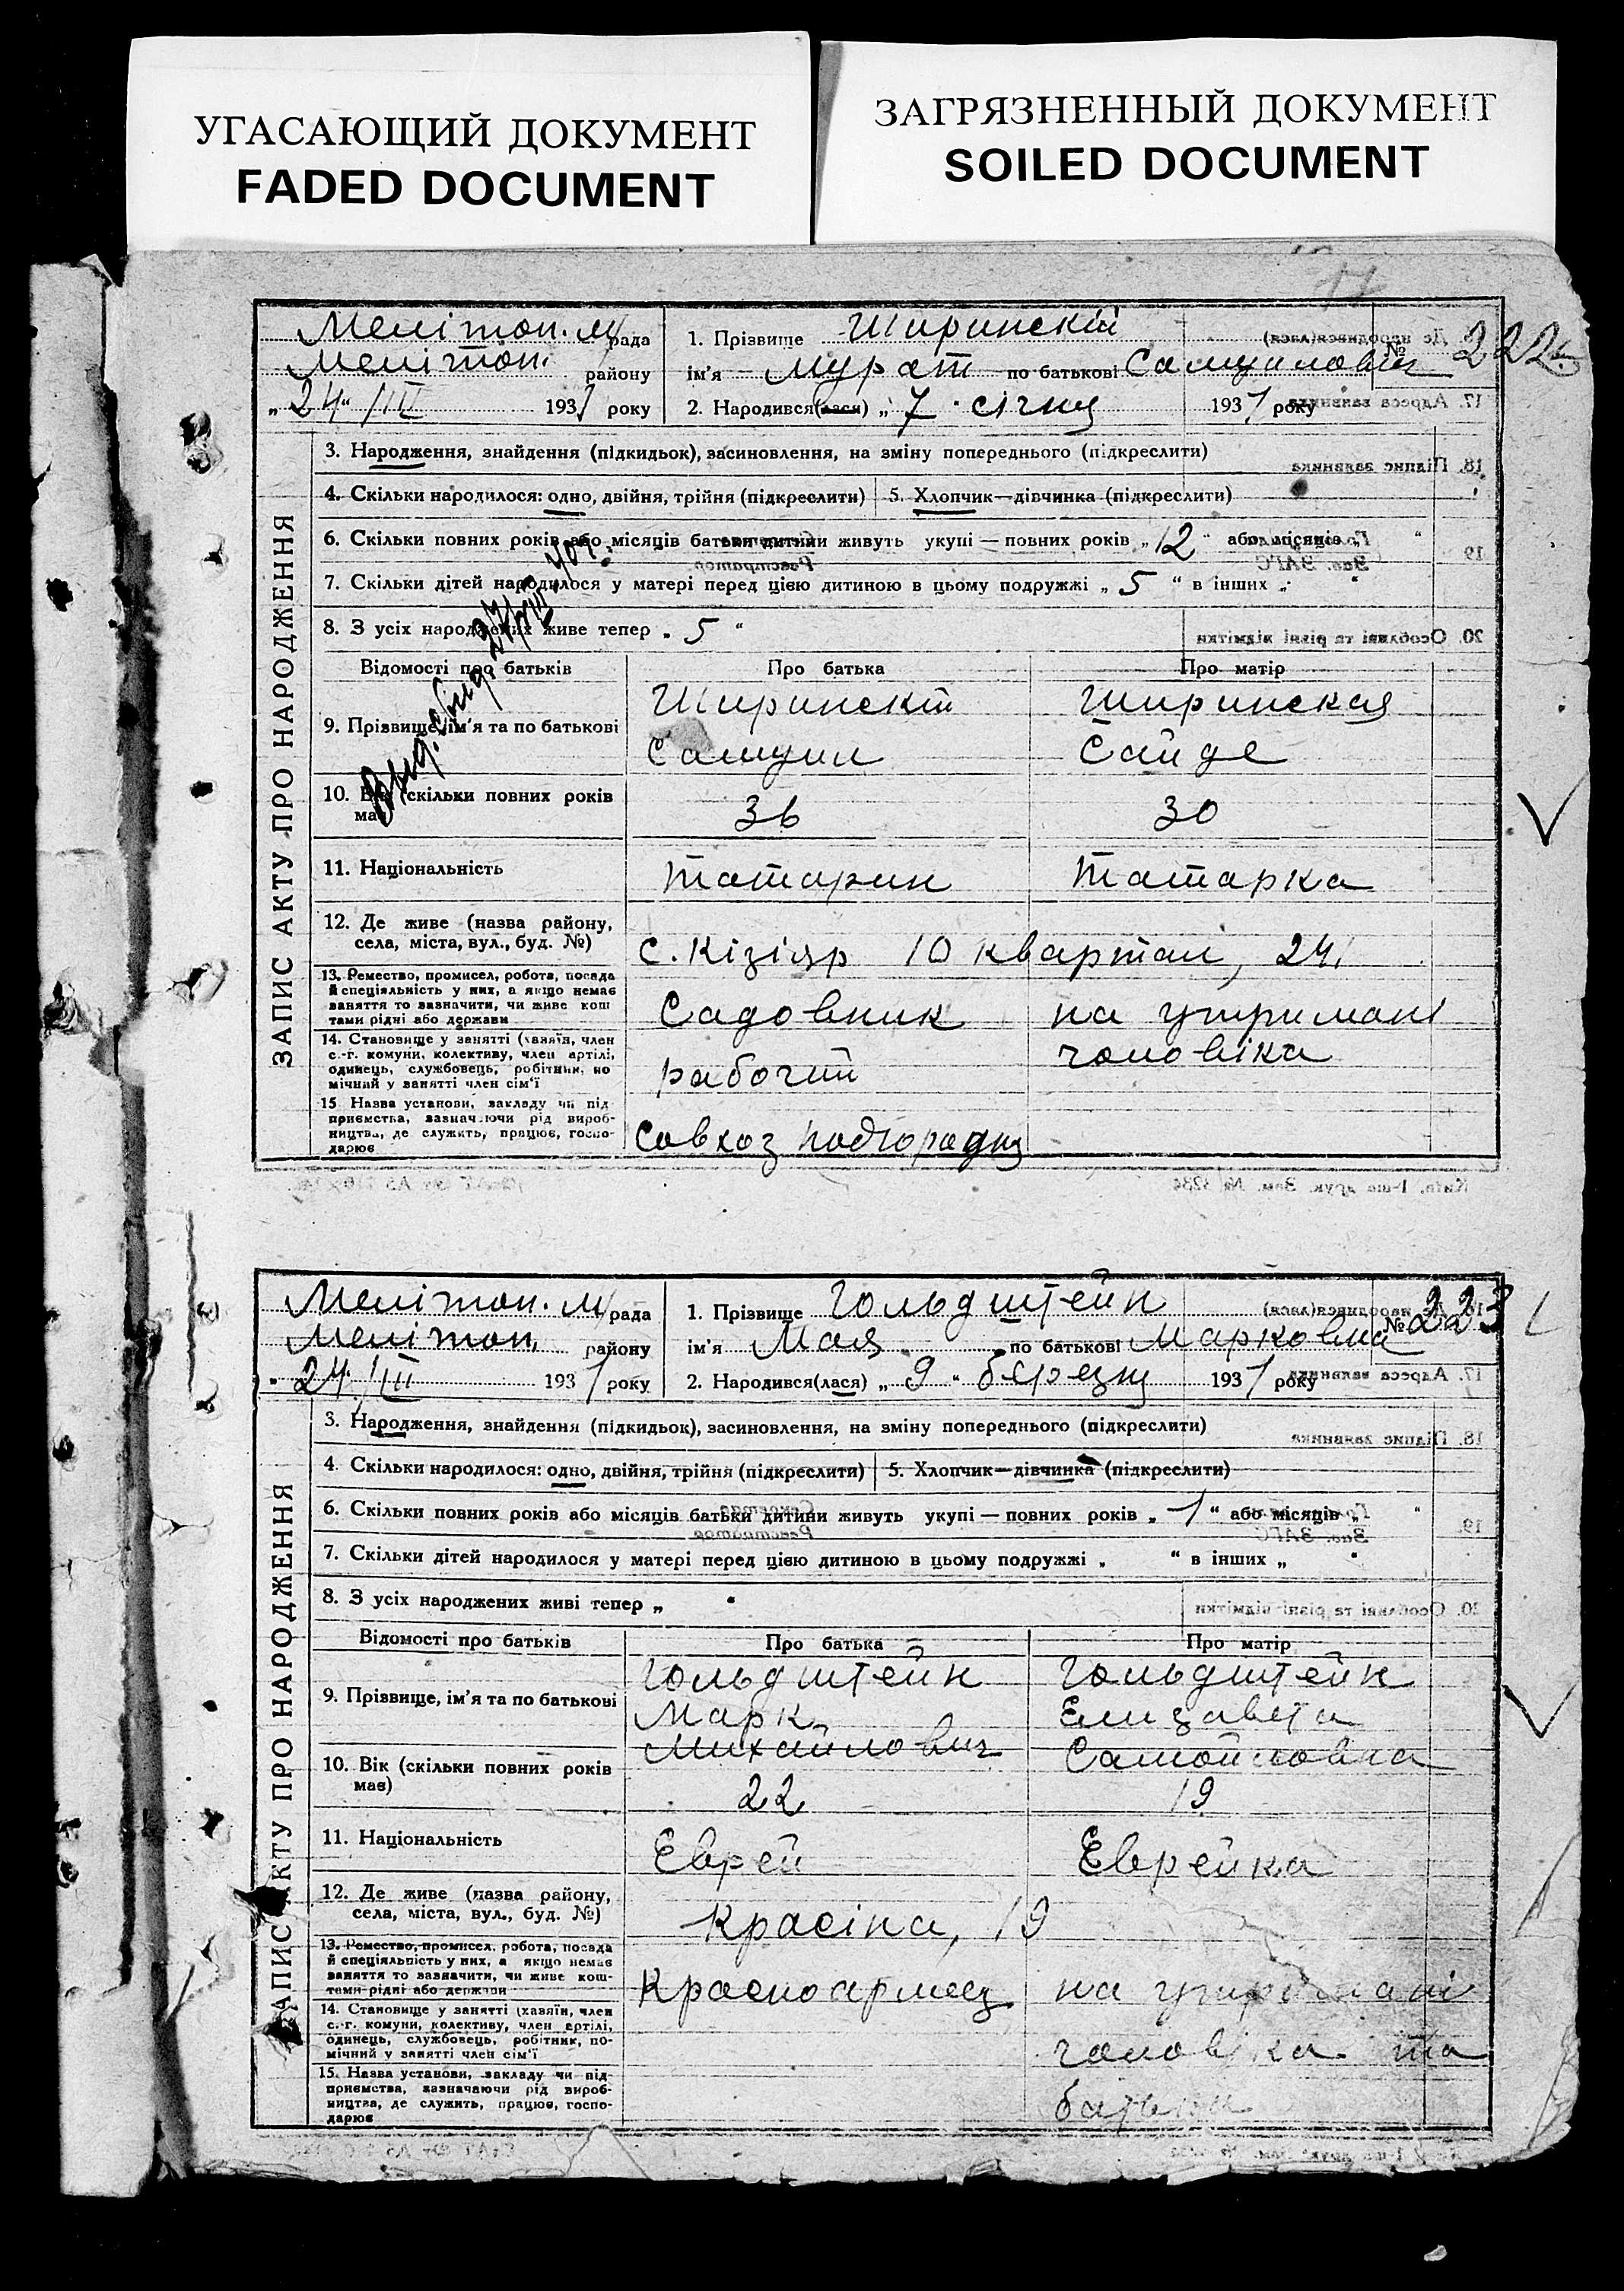 УГАСАЮЩИЙ ДОКУМЕНТ
FADED DOCUMENT
ЗАГРЯЗНЕННЫЙ ДОКУМЕНТ
SOILED DOCUMENT
Мелітоп. м/рада
Мелітоп. району
„24“ /III 1931 року
1. Прізвище Ширинскій
№ 222
ім'я Мурат по батькові Самуилович
2. Народився(лася) „7“ січня 1931 року
ЗАПИС АКТУ ПРО НАРОДЖЕННЯ
3. Народження, знайдення (підкидьок), засиновлення, на зміну попереднього (підкреслити)
4. Скільки народилося: одно, двійня, трійня (підкреслити) 5. Хлопчик—дівчинка (підкреслити)
6. Скільки повних років або місяців батьки дитини живуть укупі — повних років „12“ або місяців „ “
7. Скільки дітей народилося у матері перед цією дитиною в цьому подружжі „5“ в інших „ “
8. З усіх народжених живе тепер „5“
Відомості про батьків Про батька Про матір
9. Прізвище, ім'я та по батькові Ширинскій Ширинская
Самуил Сайде
10. Вік (скільки повних років має) 36 30
11. Національність татарин татарка
12. Де живе (назва району, села, міста, вул., буд. №) с. Кізіяр 10 квартал, 24
13. Ремество, промисел, робота, посада й спеціяльність у них, а якщо немає заняття то зазначити, чи живе коштами рідні або держави Садовник на утримані
чоловіка
14. Становище у занятті (хазяїн, член с.-г. комуни, колективу, член артілі, одинець, службовець, робітник, помічний у занятті член сім'ї рабочий
15 Назва установи, закладу чи підприємства, зазначаючи рід виробництва, де служить, працює, господарює Совхоз
Київ, 1-ша друк. Зам. № 3234
Мелітоп. м/рада
Мелітоп. району
„24“ /III 1931 року
1. Прізвище Гольдштейн
№ 223
ім'я Мая по батькові Марковна
2. Народився(лася) „9“ березня 1931 року
ЗАПИС АКТУ ПРО НАРОДЖЕННЯ
3. Народження, знайдення (підкидьок), засиновлення, на зміну попереднього (підкреслити)
4. Скільки народилося: одно, двійня, трійня (підкреслити) 5. Хлопчик—дівчинка (підкреслити)
6. Скільки повних років або місяців батьки дитини живуть укупі — повних років „1“ або місяців „ “
7. Скільки дітей народилося у матері перед цією дитиною в цьому подружжі „ “ в інших „ “
8. З усіх народжених живі тепер „ “
Відомості про батьків Про батька Про матір
9. Прізвище, ім'я та по батькові Гольдштейн Гольдштейн
Марк Елизавета
Михайлович Самойловна
10. Вік (скільки повних років має) 22 19
11. Національність Еврей Еврейка
12. Де живе (назва району, села, міста, вул., буд. №) Красіна, 19
13. Ремество, промисел, робота, посада й спеціяльність у них, а якщо немає заняття то зазначити, чи живе коштами рідні або держави Красноармеец на утримані
чоловіка та
14. Становище у занятті (хазяїн, член с.-г. комуни, колективу, член артілі, одинець, службовець, робітник, помічний у занятті член сім'ї
15. Назва установи, закладу чи підприємства, зазначаючи рід виробництва, де служить, працює, господарює